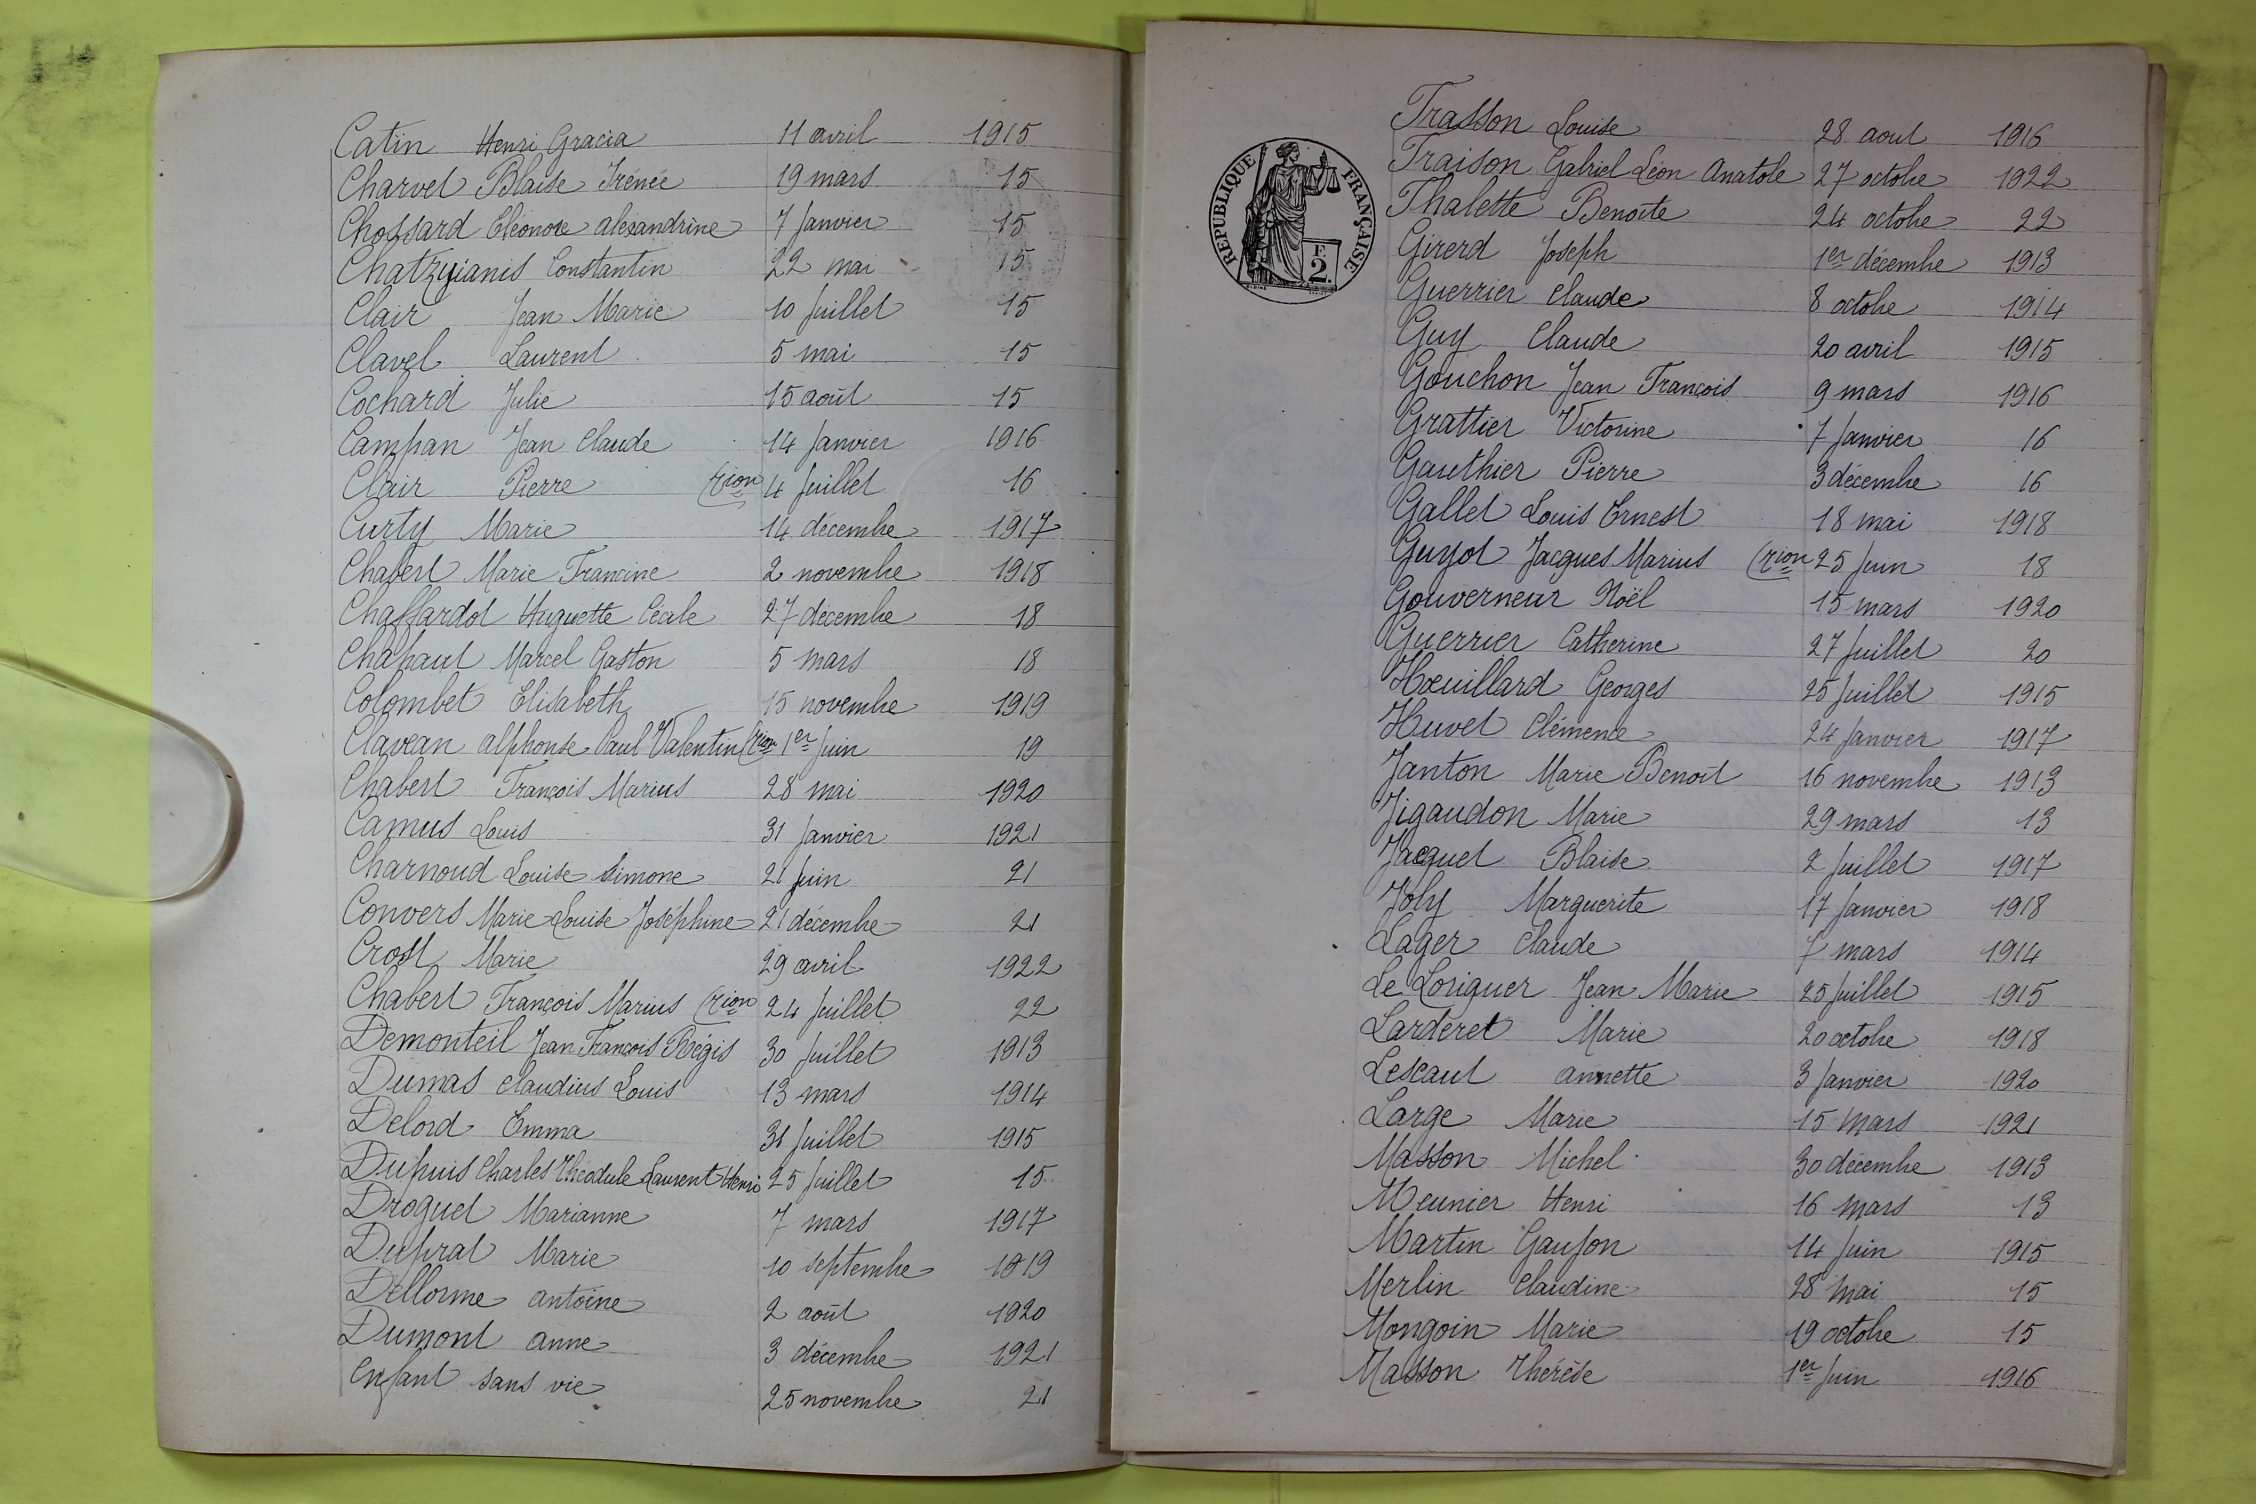 Catin Henri Gracia 11 avril 1915
Charvet Blaise Irénée 19 mars 15
Chossard Eléonore alexandrine 7 Janvier 15
Chatzyianis Constantin 22 mai 15
Clair Jean Marie 10 Juillet 15
Clavel Laurent 5 mai 15
Cochard Julie 15 août 15
Campan Jean Claude 14 Janvier 1916
Clair Pierre (rion 4 Juillet 16
Curty Marie 14 décembre 1917
Chabert Marie Francine 2 novembre 1918
Chaffardot Huguette Cécile 27 décembre 18
Chapaut Marcel Gaston 5 mars 18
Colombet Elisabeth 15 novembre 1919
Clavean alphonse Paul Valentin (rion 1er Juin 19
Chabert François Marius 28 mai 1920
Camus Louis 31 Janvier 1921
Charnoud Louise Simone 21 Juin 21
Convers Marie Louise Joséphine 21 décembre 21
Crost Marie 29 avril 1922
Chabert François Marius (rion 24 Juillet 22
Demonteil Jean François Régis 30 Juillet 1913
Dumas Claudius Louis 13 mars 1914
Delord Emma 31 Juillet 1915
Dupuis Charles Théodule Laurent Henri 25 Juillet 15
Droguet Marianne 7 mars 1917
Duprat Marie 10 septembre 1919
Dellorme antoine 2 août 1920
Dumont anne 3 décembre 1921
Enfant sans vie 25 novembre 21
REPUBLIQUE FRANÇAISE
F.
2
Frasson Louise 28 aout 1916
Fraison Gabriel Léon Anatole 27 octobre 1922
Fhalette Benoîte 24 octobre 22
Girerd Joseph 1er décembre 1913
Guerrier Claude 8 octobre 1914
Guy Claude 20 avril 1915
Gouchon Jean François 9 mars 1916
Grattier Victorine 7 Janvier 16
Gauthier Pierre 3 décembre 16
Gallet Louis Ernest 18 mai 1918
Guyot Jacques Marius (rion 25 Juin 18
Gouverneur Noël 15 mars 1920
Guerrier Catherine 27 Juillet 20
Hoeuillard Georges 25 Juillet 1915
Huvet Clémence 24 Janvier 1917
Janton Marie Benoit 16 novembre 1913
Jigaudon Marie 29 mars 13
Jacquet Blaise 2 Juillet 1917
Joly Marguerite 17 Janvier 1918
Lager Claude 7 mars 1914
Le Loriguer Jean Marie 25 Juillet 1915
Larderet Marie 20 octobre 1918
Lescaut annette 3 Janvier 1920
Large Marie 15 Mars 1921
Masson Michel 30 décembre 1913
Meunier Henri 16 mars 13
Martin Gaujon 14 Juin 1915
Merlin Claudine 28 mai 15
Mongoin Marie 19 octobre 15
Masson Thérèse 1er Juin 1916